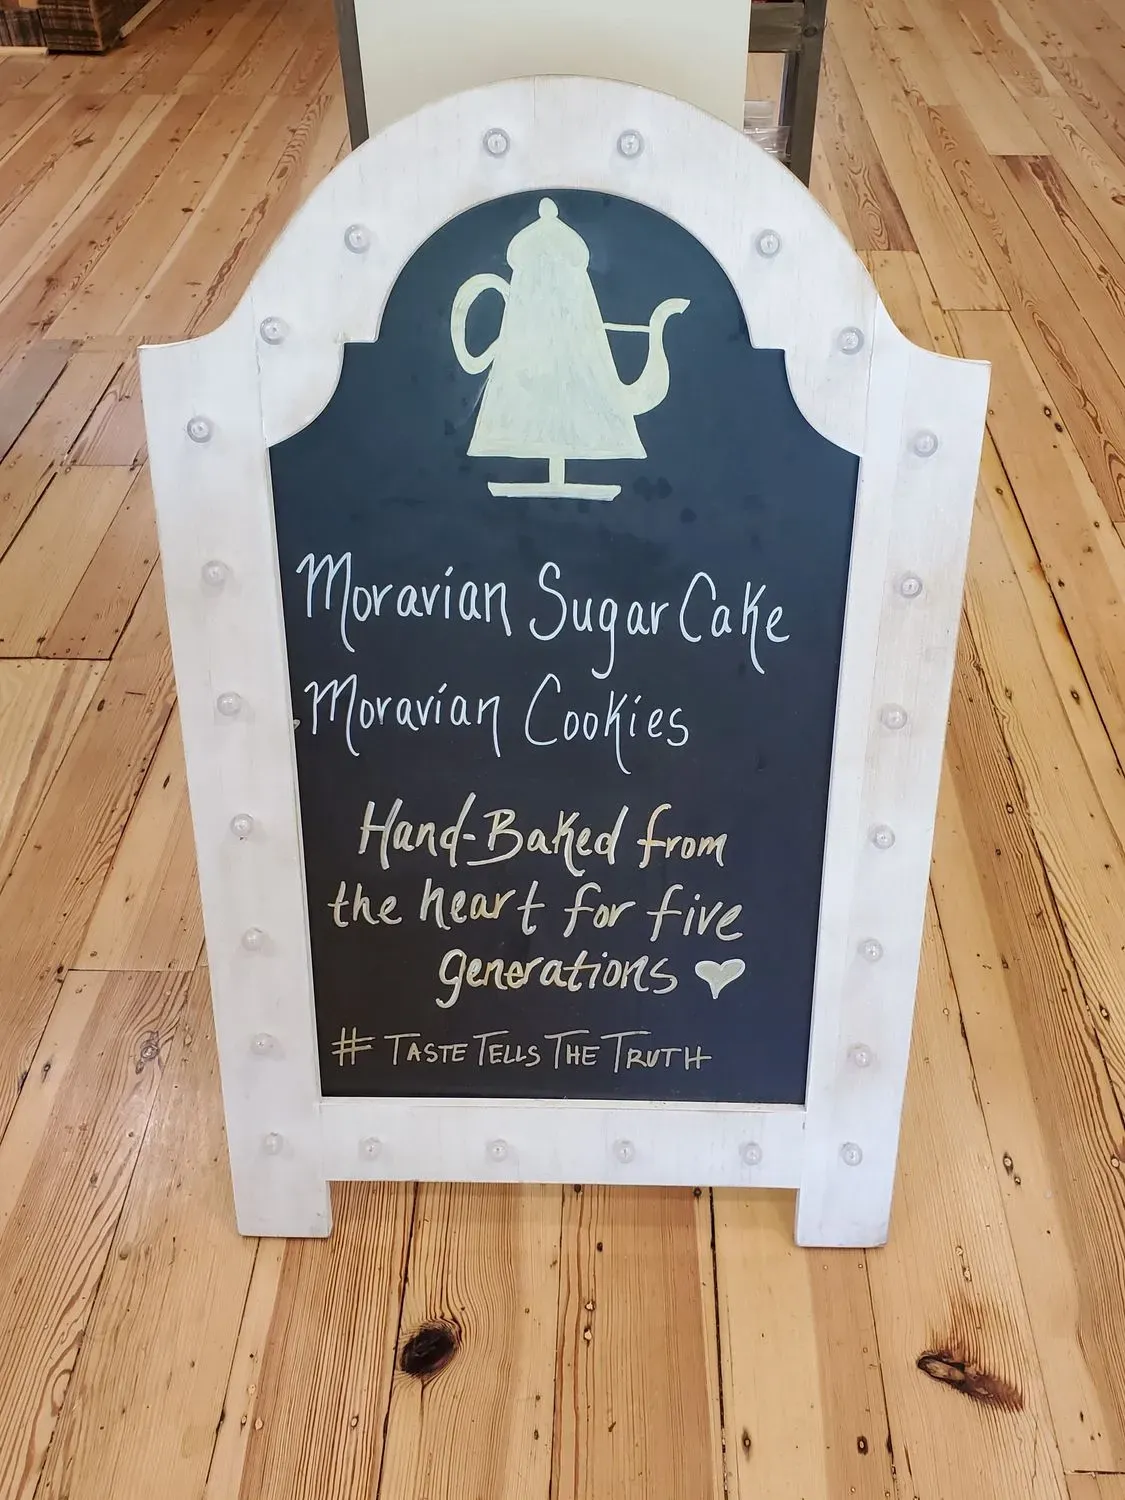 Moravian Sugar Cake
Moravian Cookies
Hand-Baked from
the heart for five
generations
# TASTE TELLS THE TRUTH